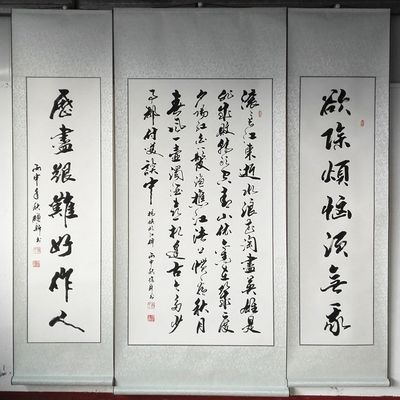 欲除烦恼须无我
滚滚长江东逝水浪花淘尽英雄是
非成败转头空青山依旧在几度
夕阳红白发渔樵江渚上惯看秋月
春风一壶浊酒喜相逢古今多少
事都付笑谈中 杨慎临江仙 丙申秋
歷盡艱難好作人
丙申年秋